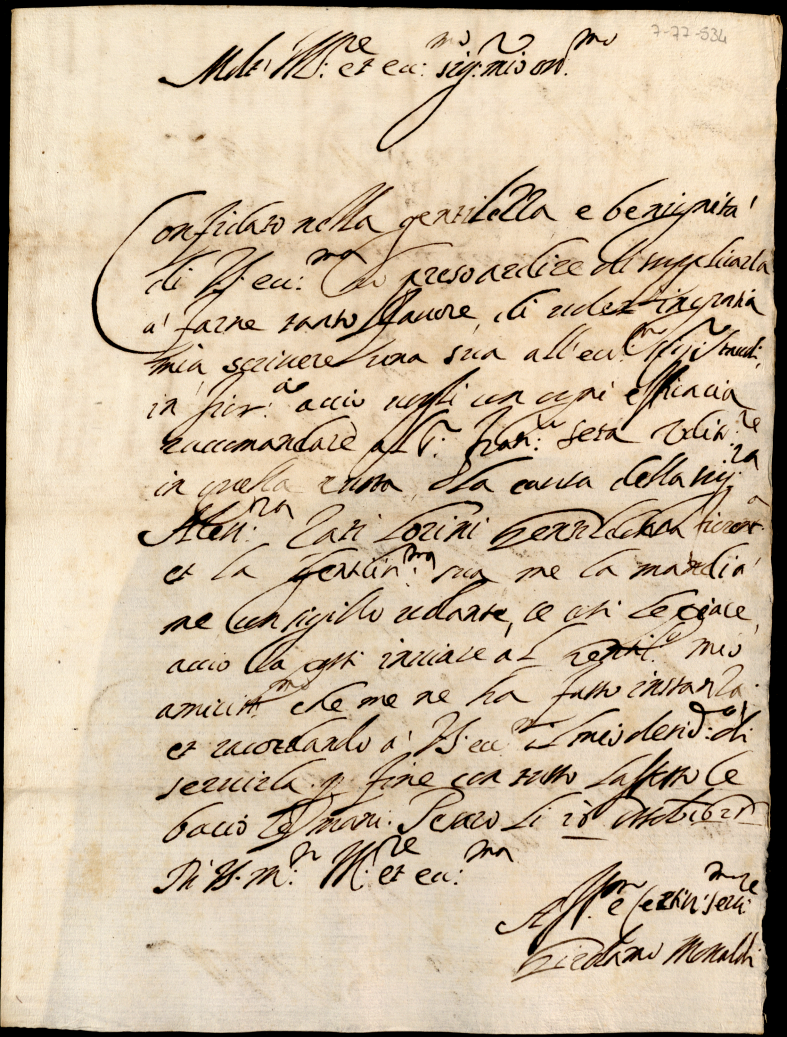 7-77-534
Molt' Ill:re et ecc:mo sig:r mio oss.mo
Confidato nella gentilezza e benignità
di V.S. ecc:ma ho preso ardire di supplicarla
a' farne tanto favore, di voler in grazia
mia scrivere una sua all'ecc.mo sig.r
in fior: acciò vogli con ogni efficacia
raccomandare al S.r Seta Udit:re
in quella ruota, la causa della sig:ra
Aless:ra Lorini gentildonna fiorent:a
et la gentiliss:ma sua me la mandià
me con sigillo volante, se così le piace,
acciò la possi inviare al gentil:o mio
amiciss:mo che me ne ha fatto instanza.
et racordando a' V.S. ecc:ma il mio desid:o di
servirla p fine con tutto l'affetto le
bacio le mani. Pesaro li 28 ottob
Di V.S. m:to Ill:re et ecc:ma
Aff.mo e serv:re
Girolamo Monaldi